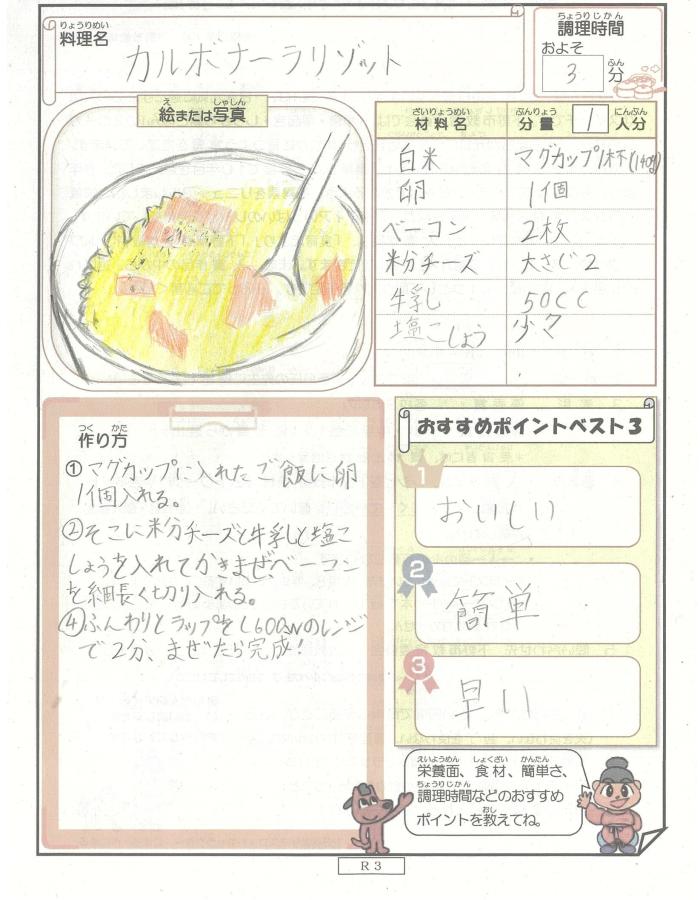 りょうりめい
料理名
カルボナーラリゾット
ちょうりじかん
調理時間
およそ
3 ふん 分
え しゃしん
絵または写真
ざいりょうめい ぶんりょう にんぶん
材料名 分量 1 人分
白米 マグカップ1杯(140g)
卵 1個
ベーコン 2枚
粉チーズ 大さじ2
牛乳 50CC
塩こしょう 少々
つく かた
作り方
①マグカップに入れたご飯に卵
1個入れる。
②そこに粉チーズと牛乳と塩こ
しょうを入れてかきまぜ、ベーコン
を細長く切り入れる。
④ふんわりとラップをし600wのレンジ
で2分、まぜたら完成!
おすすめポイントベスト3
1
おいしい
2
簡単
3
早い
えいようめん しょくざい かんたん
栄養面、食材、簡単さ、
ちょうりじかん
調理時間などのおすすめ
おし
ポイントを教えてね。
R3